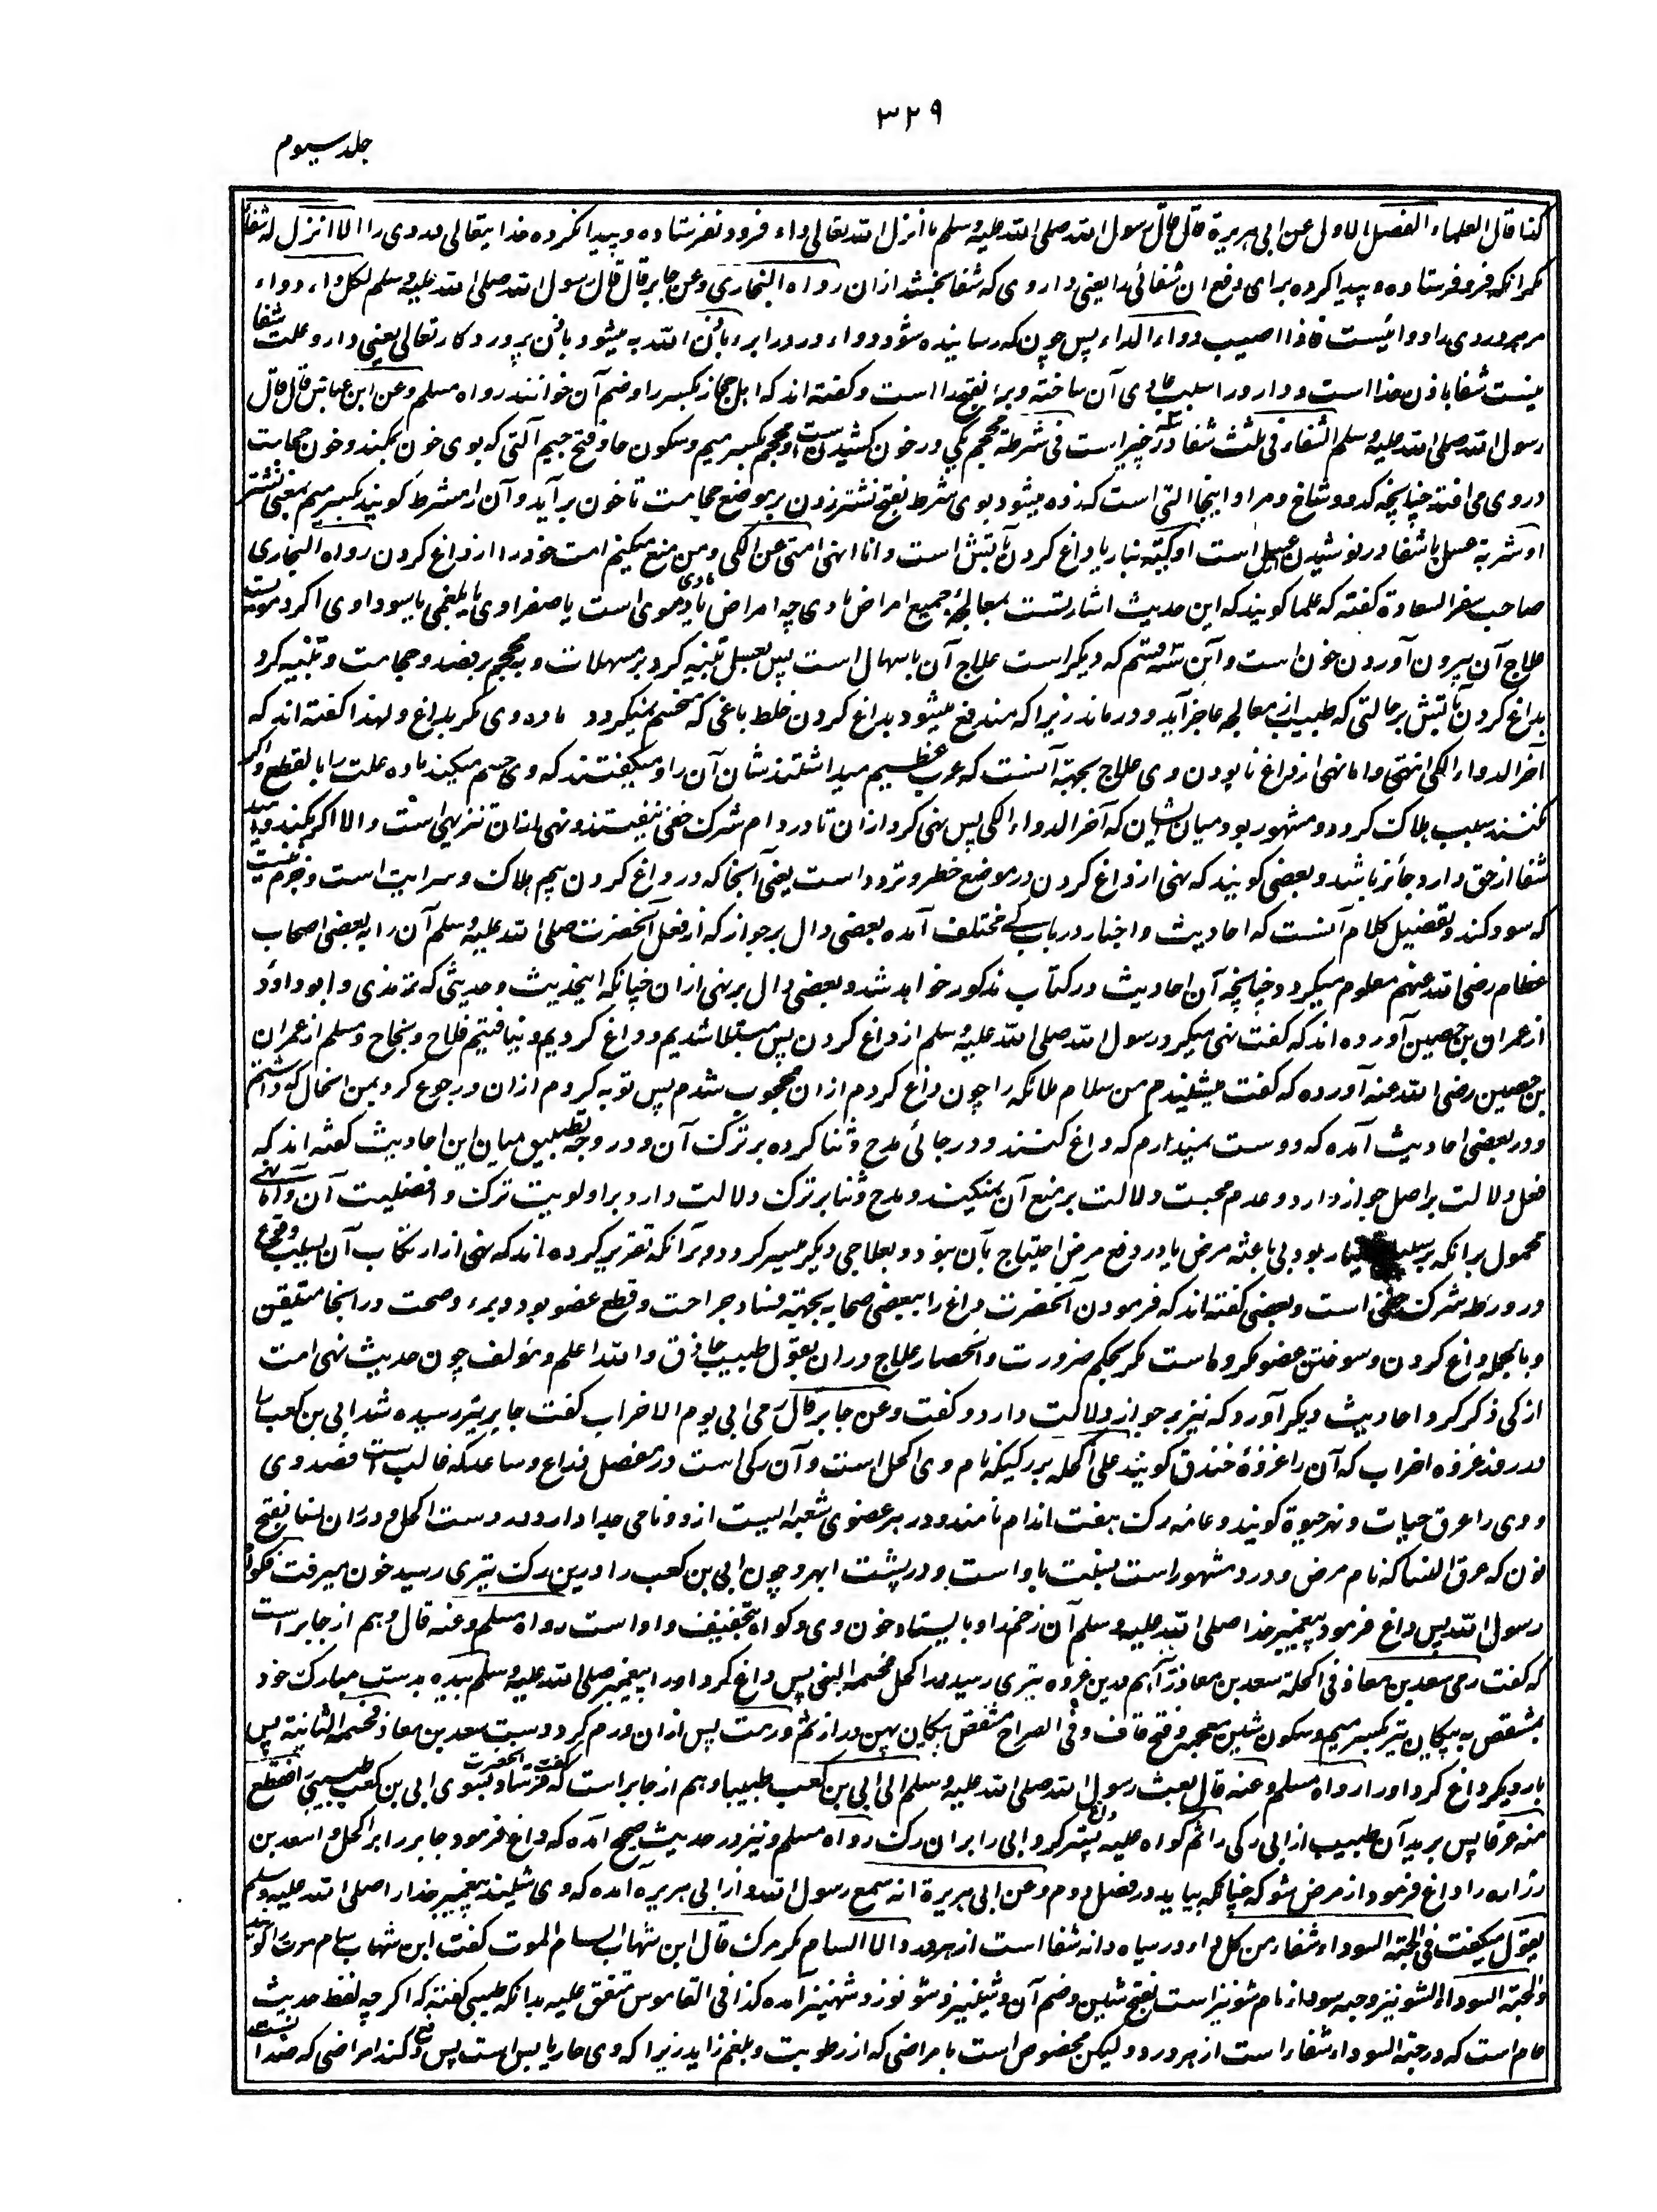 ۳۲۹
جلد سیوم
کذا قال العلماء الفصل الاول عن ابی هریرة قال قال رسول الله صلی الله علیه وسلم ما انزل الله تعالی داء فرود نفرستاده و پیدا نکرده خدایتعالی دردی را الا انزل له شفاء
مگر آنکه فرو فرستاده و پیدا کرده برای دفع آن شفائی را یعنی داروی که شفا بخشد ازان رواه البخاری وعن جابر قال قال رسول الله صلی الله علیه وسلم لکل داء دواء
مر هر دردی را دوائیست فاذا اصیب دواء الداء پس چون که رسانیده شود دواء درد را برء باذن الله به میشود باذن پروردگار تعالی یعنی دارو علت شفا
نیست شفا باذن خدا است و دارو را سبب عادی آن ساخته و برا بفتح را است و گفته اند که اهل حجاز بکسر را و ضم آن خوانند رواه مسلم وعن ابن عباس قال قال
رسول الله صلی الله علیه وسلم الشفاء فی ثلث شفا در سه چیز است فی شرطة محجم یکی در خون کشیدن است و محجم بکسر میم و سکون حا و فتح جیم آلتی که بوی خون بمکند و خون حجامت
در وی می افتد چنانچه کدو و شاخ و مراد اینجا آلتی است که زده میشود بوی شرط بفتح نشتر زدن بر موضع حجامت تا خون برآید و آن را مشرط گویند بکسر میم بمعنی نشتر
او شربة عسل یا شفا در نوشیدن عسل است او کیة بنار یا داغ کردن بآتش است و انا انهی امتی عن الکی و من منع میکنم امت خود را از داغ کردن رواه البخاری
صاحب سفر السعادة گفته که علما گویند که این حدیث اشارتست بمعالجهٔ جمیع امراض مادی چه امراض مادی یا دموی است یا صفراوی یا بلغمی یا سوداوی اگر دمویست
علاج آن بیرون آوردن خون است و آین سه قسم که دیگر است علاج آن باسهال است پس بعسل تنبیه کرد بر مسهلات و به محجم بر فصد و حجامت و تنبیه کرد
بداغ کردن بآتش بر حالتی که طبیب از معالجه عاجز آید و درماند زیرا که مندفع میشود بداغ کردن خلط باغی که منحسم نمیگردد ماده وی مگر بداغ و لهذا گفته اند که
آخر الدواء الکی انتهی و اما نهی از داغ با بودن وی علاج بجهت آنست که عرب عظیم میداشتند شان آن را و میگفتند که وی حسم میکند ماده علت را بالقطع و اگر
نکنند سبب هلاک گردد و مشهور بود میان ایشان که آخر الدواء الکی پس نهی کرد ازان تا در دام شرک خفی نیفتند و نهی ازان تنزیهی است والا اگر بکند و امید
شفا از حق دارد جائز باشد و بعضی گویند که نهی از داغ کردن در موضع خطر و تردد است یعنی آنجا که در داغ کردن بیم هلاک و سرایت است و جزم نیست
که سود کند و تفصیل کلام آنست که احادیث و اخبار در باب کی مختلف آمده بعضی دال بر جواز که از فعل آنحضرت صلی الله علیه وسلم آن را به بعضی اصحاب
عظام رضی الله عنهم معلوم میگردد چنانچه آن احادیث در کتاب مذکور خواهد شد و بعضی دال بر نهی ازان چنانکه اینحدیث و حدیثی که ترمذی و ابوداؤد
از عمران بن حصین آورده اند که گفت نهی میکرد رسول الله صلی الله علیه وسلم از داغ کردن پس مبتلا شدیم و داغ کردیم و نیافتیم فلاح و نجاح و مسلم از عمران
بن حصین رضی الله عنه آورده که گفت میشنیدم من سلام ملائکه را چون داغ کردم ازان محجوب شدم پس توبه کردم ازان و رجوع کرد بمن آنحال که داشتم
و در بعضی احادیث آمده که دوست نمیدارم که داغ کنند و در جائی مدح و ثنا کرده بر ترک آن و در وجه تطبیق میان این احادیث گفته اند که
فعل دلالت بر اصل جواز دارد و عدم محبت دلالت بر منع آن نمیکند و مدح و ثنا بر ترک دلالت دارد بر اولویت ترک و افضلیت آن و اما نهی
محمول بر آنکه بر سبیل اختیار بود بی باعثه مرض یا در دفع مرض احتیاج بآن نبود و بعلاجی دیگر میسر گردد و برآنکه تقریر کرده اند که نهی از ارتکاب آن بسبب وقوع
در ورطه شرک خفی است و بعضی گفته اند که فرمودن آنحضرت داغ را ببعضی صحابه بجهت فساد جراحت و قطع عضو بود و برء و صحت در اینجا متیقن
و بالجمله داغ کردن و سوختن عضو مکروه است مگر بحکم ضرورت و انحصار علاج در ان بقول طبیب حاذق و الله اعلم و مؤلف چون حدیث نهی امت
از کی ذکر کرد احادیث دیگر آورد که نیز بر جواز دلالت دارد و گفت وعن جابر قال رمی ابی یوم الاحزاب گفت جابر بتیر رسیده شد ابی بن کعب را
در روز غزوه احزاب که آن را غزوهٔ خندق گویند علی اکحله بر رگیکه نام وی اکحل است و آن رگی است در مفصل ذراع و ساعد که غالب است فصد وی
و وی را عرق حیات و نهر حیوة گویند و عامه رگ هفت اندام نامند و در هر عضوی شعبه ایست ازو و نامی جدا دارد در دست اکحل و در ران نسا بفتح
نون که عرق النسا که نام مرض و درد مشهور است بنسبت باو است و در پشت ابهر و چون ابی بن کعب را درین رگ تیری رسید خون میرفت فکواه
رسول الله پس داغ فرمود پیغمبر خدا صلی الله علیه وسلم آن زخم را و بایستاد خون وی و کواه بتخفیف واو است رواه مسلم وعنه قال و هم از جابر است
که گفت رمی سعد بن معاذ فی اکحله سعد بن معاذ را هم درین غزوه تیری رسید در اکحل فحسمه النبی پس داغ کرد او را پیغمبر صلی الله علیه وسلم بیده بدست مبارک خود
بمشقص به پیکان تیر بکسر میم و سکون شین معجمه و فتح قاف و فی الصراح مشقص پیکان پهن و دراز ثم ورمت پس ازان ورم کرد دست سعد بن معاذ فحسمه الثانیة پس
بار دیگر داغ کرد او را رواه مسلم وعنه قال بعث رسول الله صلی الله علیه وسلم الی ابی بن کعب طبیبا و هم از جابر است که گفت فرستاد آنحضرت بسوی ابی بن کعب طبیبی را فقطع
منه عرقا پس برید آن طبیب از ابی رگی را ثم کواه علیه پستر داغ کرد ابی را بران رگ رواه مسلم و نیز در حدیث صحیح آمده که داغ فرمود جابر را بر اکحل و اسعد بن
زراره را داغ فرمود از مرض شوکه چنانکه بیاید در فصل دوم وعن ابی هریرة انه سمع رسول الله و از ابی هریره آمده که وی شنید پیغمبر خدا را صلی الله علیه وسلم
یقول میگفت فی الحبة السوداء شفاء من کل داء در سیاه دانه شفا است از هر درد الا السام مگر مرگ قال ابن شهاب السام الموت گفت ابن شهاب سام موت را گویند
والحبة السوداء الشونیز و حبه سودا نام شونیز است بفتح شین و ضم آن و شینیز و شونوز و شهنیز آمده کذا فی القاموس متفق علیه بدانکه طیبی گفته که اگر چه لفظ حدیث
عام است که در حبة السوداء شفاء است از هر درد و لیکن مخصوص است بامراضی که از رطوبت و بلغم زاید زیرا که وی حار یابس است پس دفع کند امراضی که ضد آنست